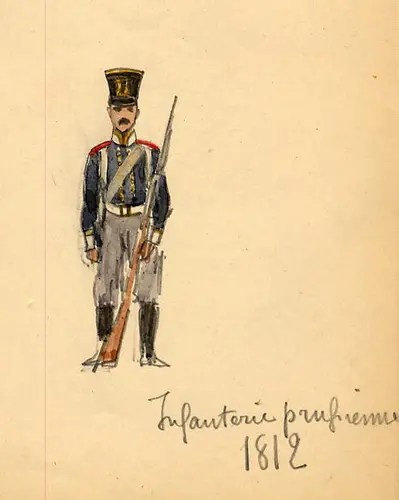 Infanterie prussienne
1812